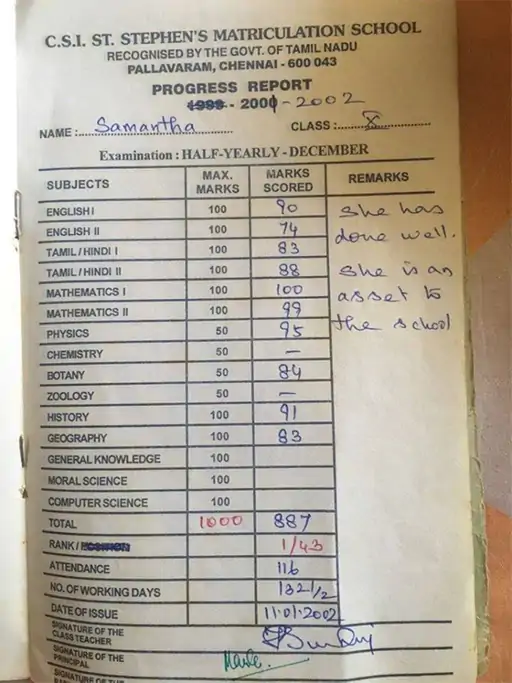 C.S.I. ST. STEPHEN'S MATRICULATION SCHOOL
RECOGNISED BY THE GOVT. OF TAMIL NADU
PALLAVARAM, CHENNAI - 600 043
PROGRESS REPORT
1999 - 2001 - 2002
NAME : Samantha CLASS : X
Examination : HALF-YEARLY - DECEMBER
SUBJECTS MAX. MARKS MARKS SCORED REMARKS
ENGLISH I 100 90 She has
ENGLISH II 100 74 done well.
TAMIL / HINDI I 100 83
TAMIL / HINDI II 100 88 She is an
MATHEMATICS I 100 100 asset to
MATHEMATICS II 100 99
PHYSICS 50 95 the school
CHEMISTRY 50 —
BOTANY 50 84
ZOOLOGY 50 —
HISTORY 100 91
GEOGRAPHY 100 83
GENERAL KNOWLEDGE 100
MORAL SCIENCE 100
COMPUTER SCIENCE 100
TOTAL 1000 887
RANK / 1/43
ATTENDANCE 116
NO. OF WORKING DAYS 132 1/2
DATE OF ISSUE 11.01.2002
SIGNATURE OF THE CLASS TEACHER
SIGNATURE OF THE PRINCIPAL
SIGNATURE OF THE